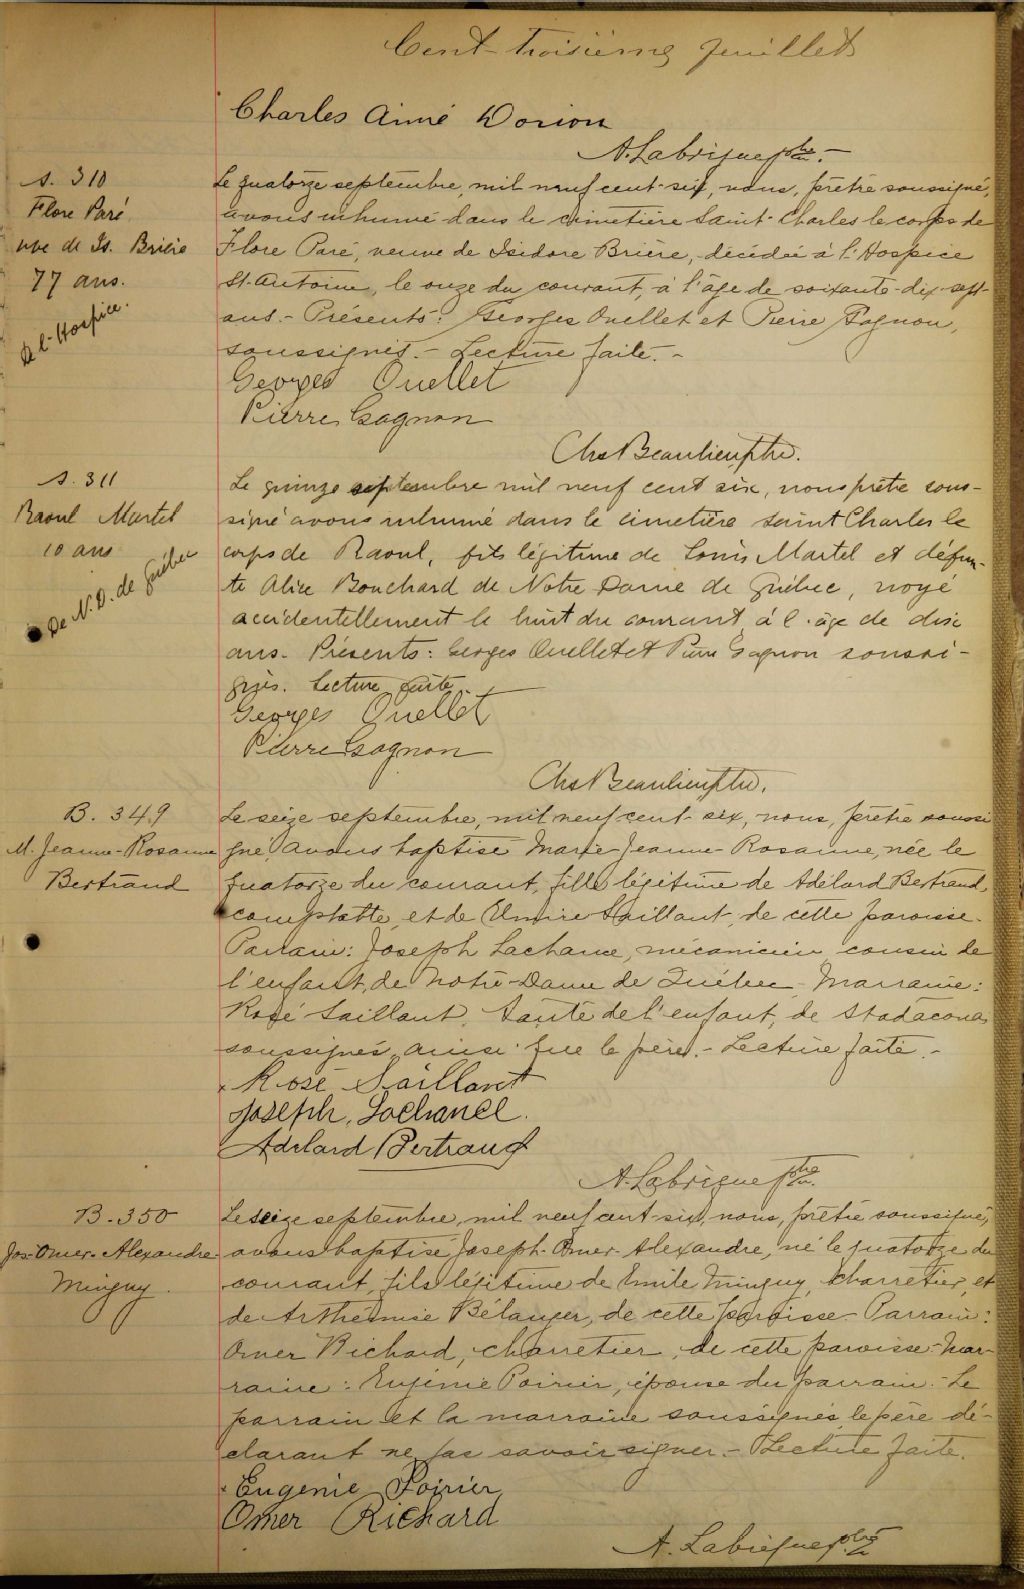 Cent-troisième feuillet
Charles Aimé Dorion
A. Labrèque ptre.-
S. 310
Flore Paré
vve de Is. Brière
77 ans.
De l'-Hospice.
Le quatorze septembre, mil neuf cent-six, nous, prêtre soussigné,
avons inhumé dans le cimetière Saint-Charles le corps de
Flore Paré, veuve de Isidore Brière, décédée à l'Hospice
St-Antoine, le onze du courant, à l'âge de soixante-dix-sept
ans.- Présents: Georges Ouellet et Pierre Gagnon,
soussignés.- Lecture faite.-
Georges Ouellet
Pierre Gagnon
Chs Beaulieu ptre.
S. 311
Raoul Martel
10 ans
De N.D. de Québec
Le quinze septembre mil neuf cent six, nous prêtre sous-
signé avons inhumé dans le cimetière Saint Charles le
corps de Raoul, fils légitime de Louis Martel et défun-
te Alice Bouchard de Notre Dame de Québec, noyé
accidentellement le huit du courant, à l'âge de dix
ans. Présents: Georges Ouellet et Pierre Gagnon soussi-
gnés. Lecture faite.
Georges Ouellet
Pierre Gagnon
Chs Beaulieu ptre.
B. 349
M. Jeanne-Rosanne
Bertrand
Le seize septembre, mil neuf cent-six, nous, prêtre soussi
gné, avons baptisé Marie-Jeanne-Rosanne, née le
quatorze du courant, fille légitime de Adélard Bertrand,
comptable, et de Elmire Saillant, de cette paroisse-
Parrain: Joseph Lachance, mécanicien, cousin de
l'enfant, de Notre-Dame de Québec- Marraine:
Rose Saillant, tante de l'enfant, de Stadacona
soussignés, ainsi que le père.- Lecture faite.-
Rose Saillant
Joseph Lachance.
Adelard Bertrand
A. Labrèque ptre.
B.-350
Jos-Omer-Alexandre
Minguy.
Le seize septembre, mil neuf cent-six, nous, prêtre soussigné,
avons baptisé Joseph-Omer-Alexandre, né le quatorze du
courant, fils légitime de Emile Minguy, charretier, et
de Arthémise Bélanger, de cette paroisse- Parrain:
Omer Richard, charretier, de cette paroisse- Mar-
raine: Eugénie Poirier, épouse du parrain.- Le
parrain et la marraine soussignés, le père dé-
clarant ne pas savoir signer.- Lecture faite.
Eugenie Poirier
Omer Richard
A. Labrèque ptre